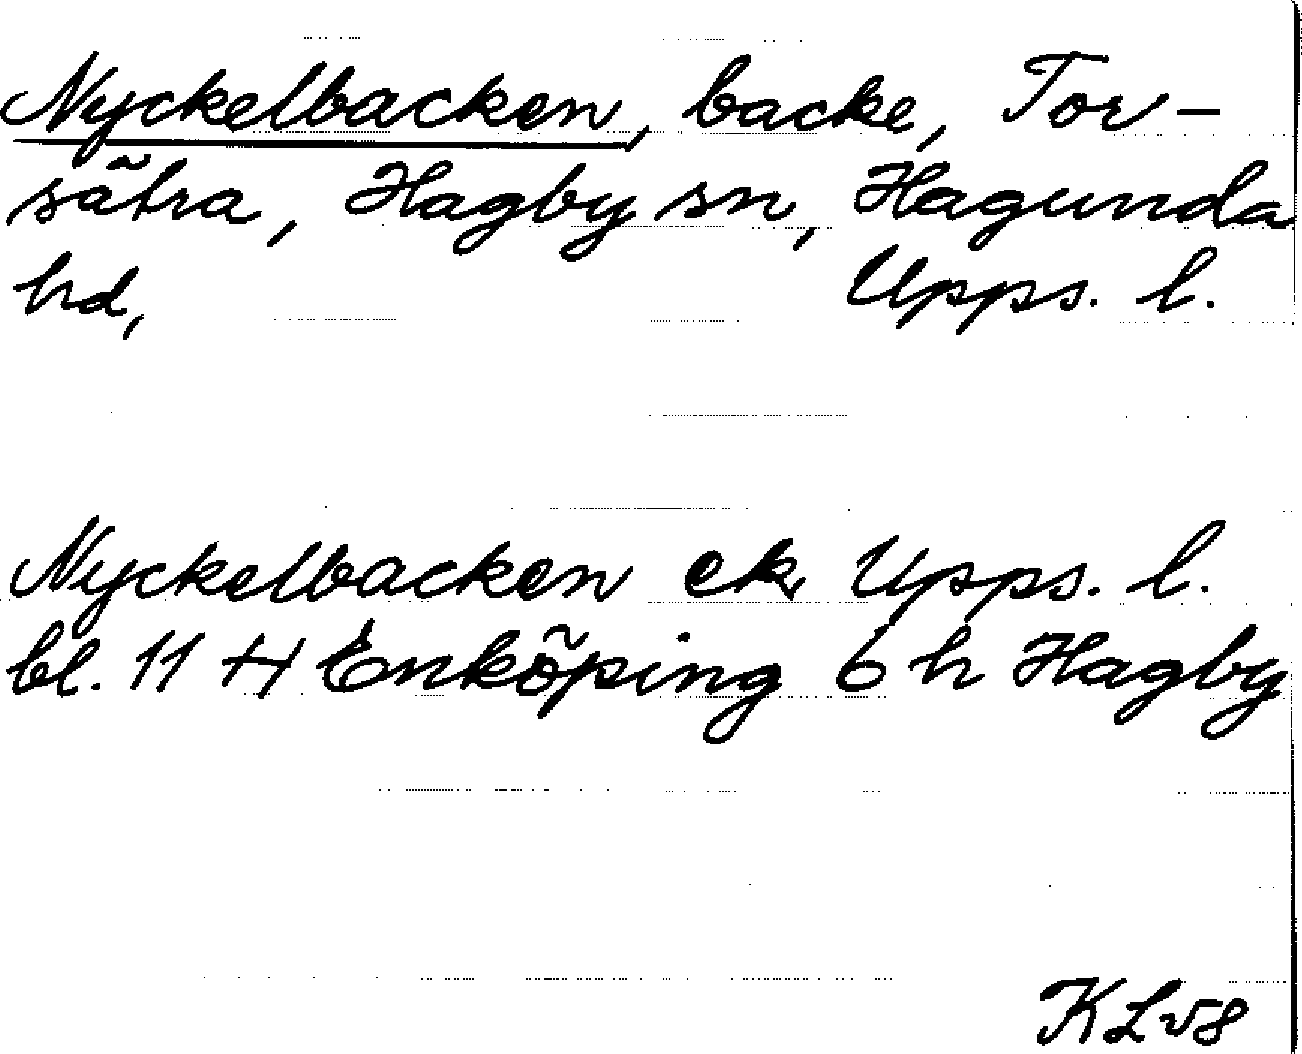 Nyckelbacken, backe, Tor-
sätra, Hagby sn, Hagunda
hd, Upps. l.
Nyckelbacken ek Upps. l.
bl. 11 H Enköping 6 h Hagby